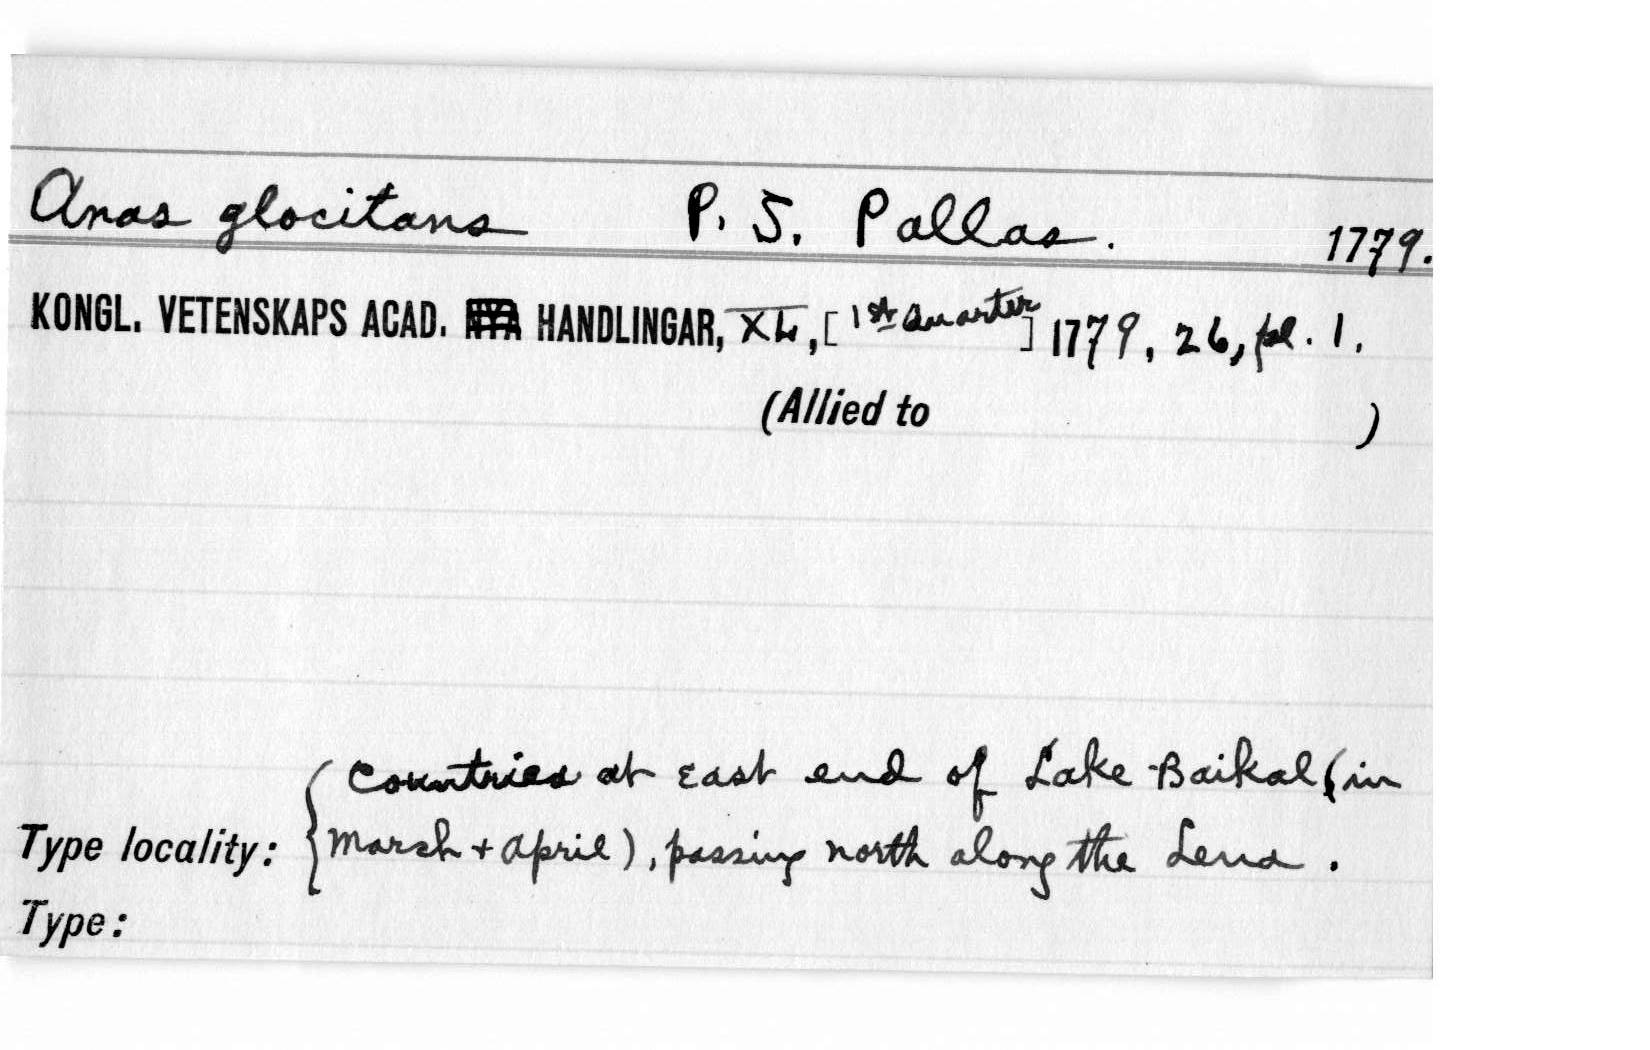 Anas glocitans P. S. Pallas. 1779.
KONGL. VETENSKAPS ACAD. NYA HANDLINGAR, XL, [1st Quarter] 1779, 26, pl. 1.
(Allied to )
Countries at East end of Lake Baikal (in
Type locality: { March + April), passing north along the Lena.
Type: